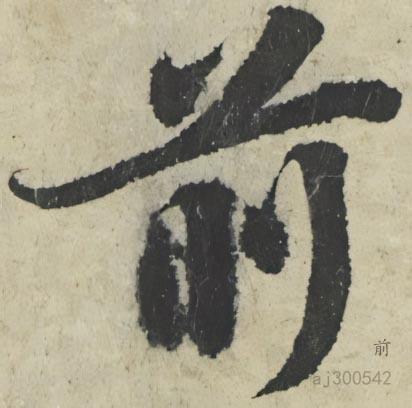 前
前
aj300542